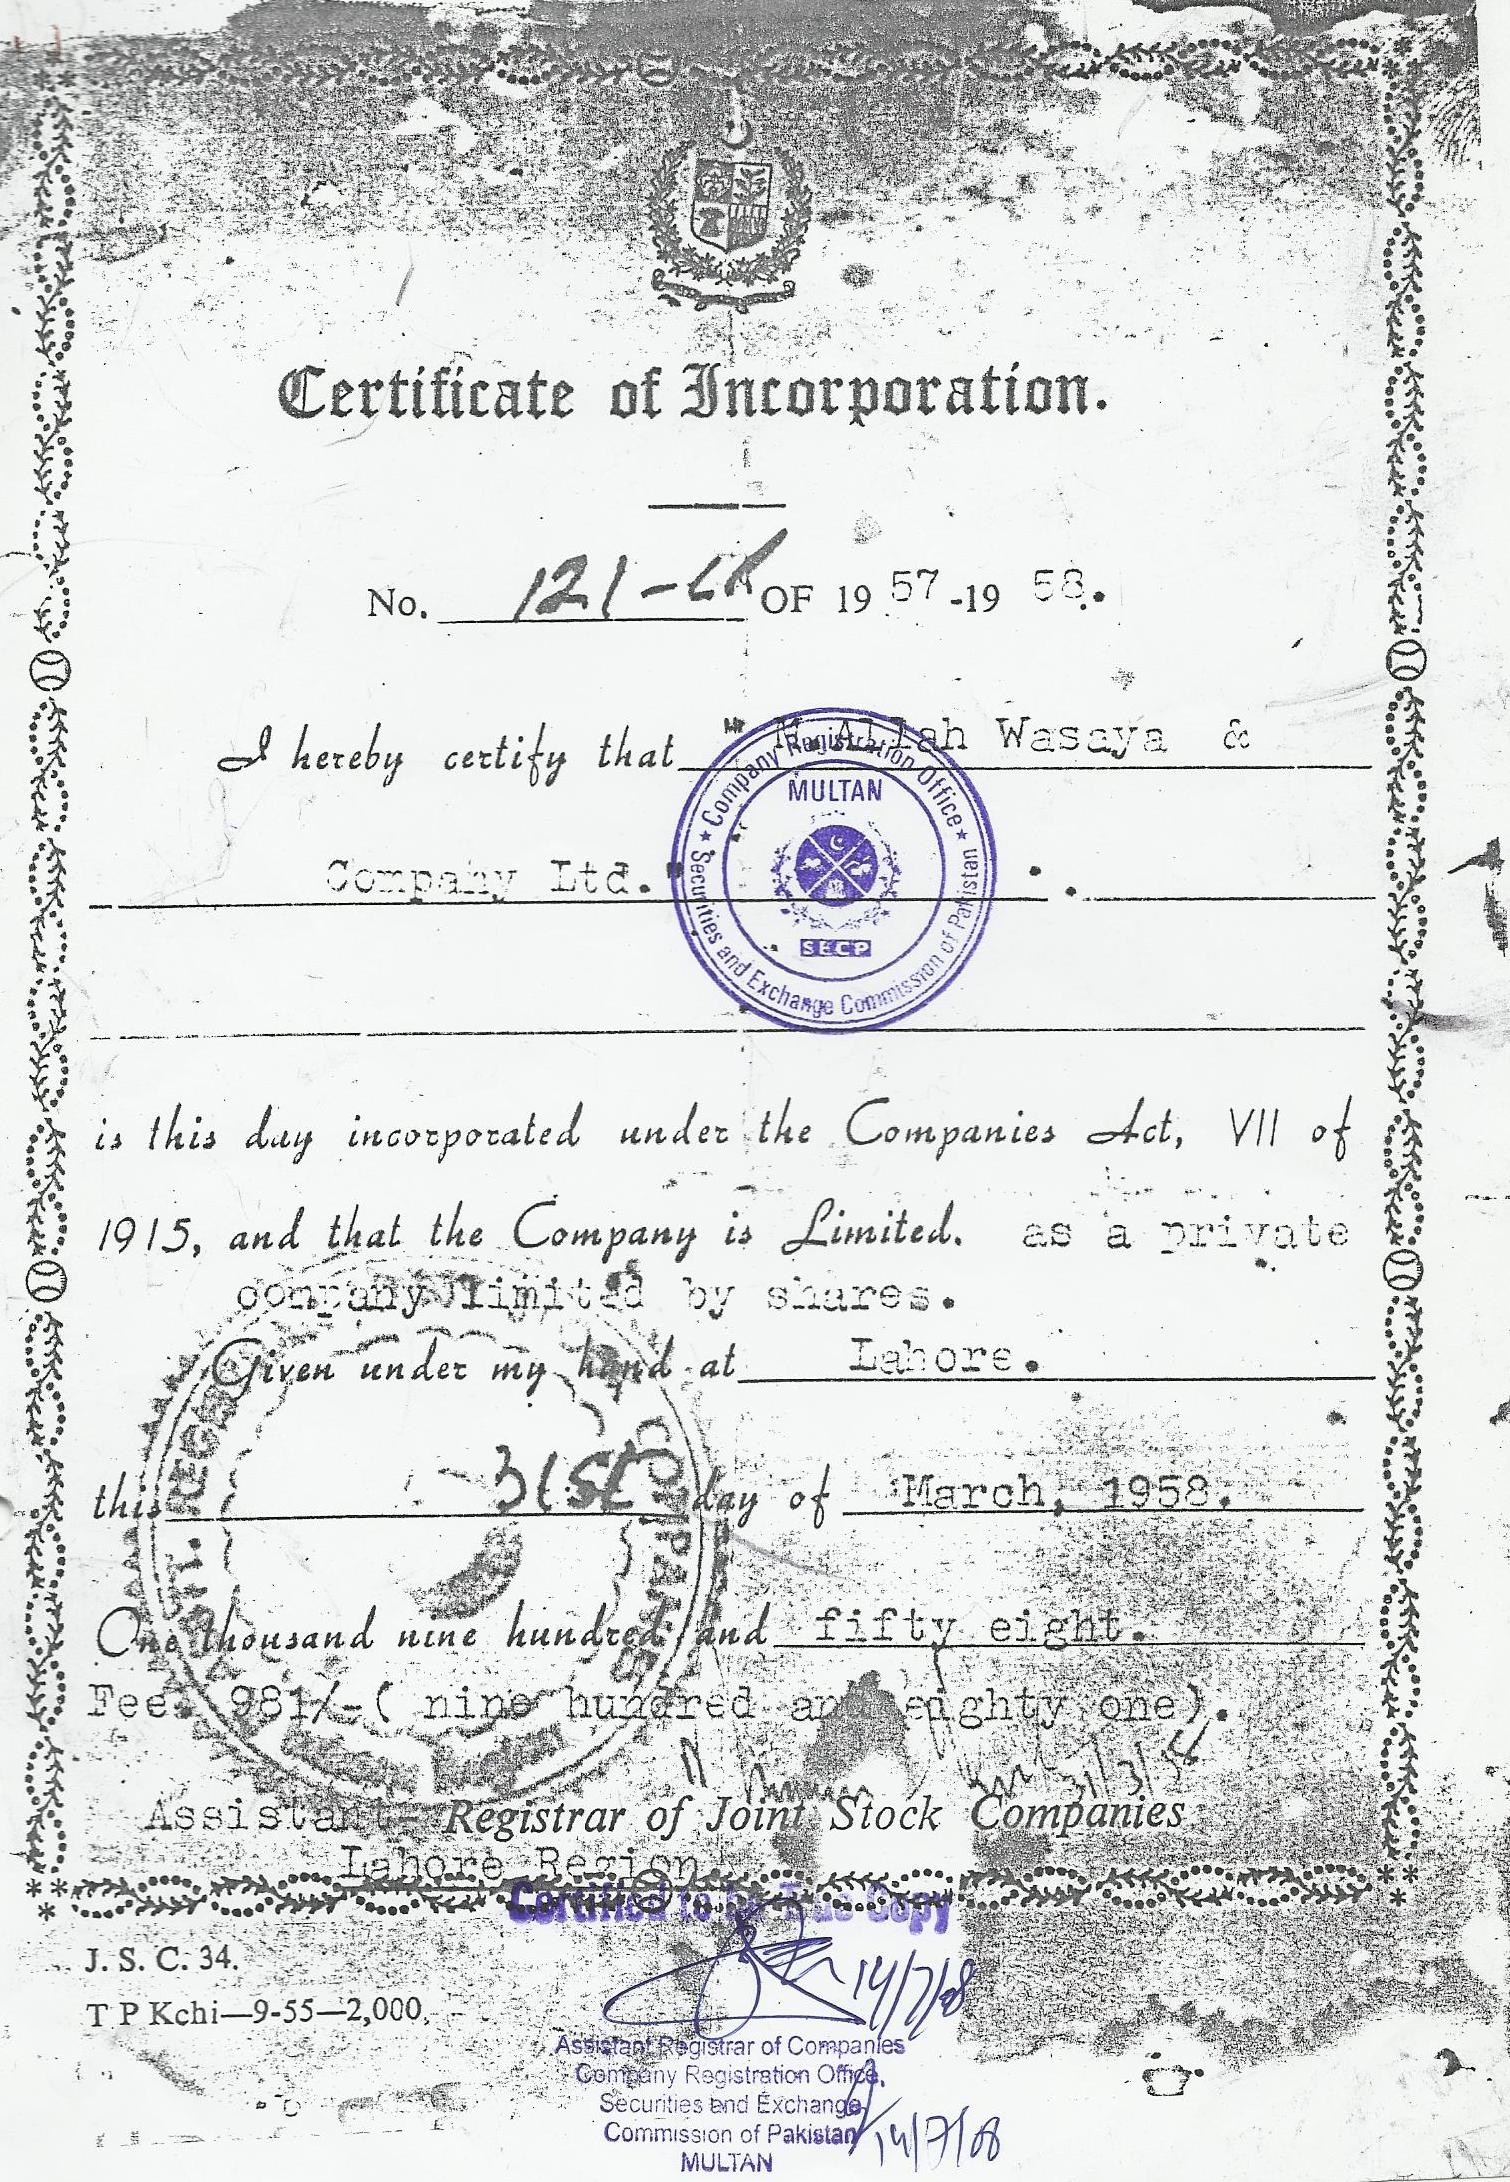 Certificate of Incorporation.
No. 121- OF 19 57 -19 58.
I hereby certify that " M. Allah Wasaya &
Company Ltd."
Company Registration Office
MULTAN
SECP
Securities and Exchange Commission of Pakistan
is this day incorporated under the Companies Act, VII of
1915, and that the Company is Limited. as a private
company limited by shares.
Given under my hand at Lahore.
this 31st day of March, 1958.
One thousand nine hundred and fifty eight.
Fee 981/-( nine hundred and eighty one).
31/3/58
Assistant Registrar of Joint Stock Companies
Lahore Region
COMPANIES
Certified to be True Copy
14/7/08
J. S. C. 34.
T P Kchi—9-55—2,000.
Assistant Registrar of Companies
Company Registration Office,
Securities and Exchange
Commission of Pakistan
14/7/08
MULTAN